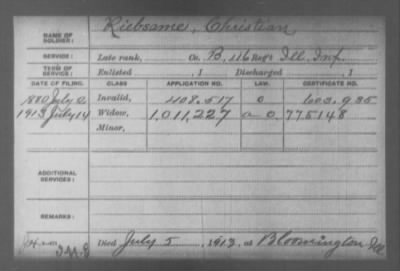 NAME OF SOLDIER: Riebsame, Christian
SERVICE: Late rank, Co. B, 116 Reg't Ill. Inf.
TERM OF SERVICE: Enlisted , 1 Discharged , 1
DATE OF FILING. CLASS. APPLICATION NO. LAW. CERTIFICATE NO.
1880 July Invalid, 408.517 603.935
1913 July 14 Widow, 1,011,227 775148
Minor,
ADDITIONAL SERVICES:
REMARKS:
Died July 5, 1913, at Bloomington Ill